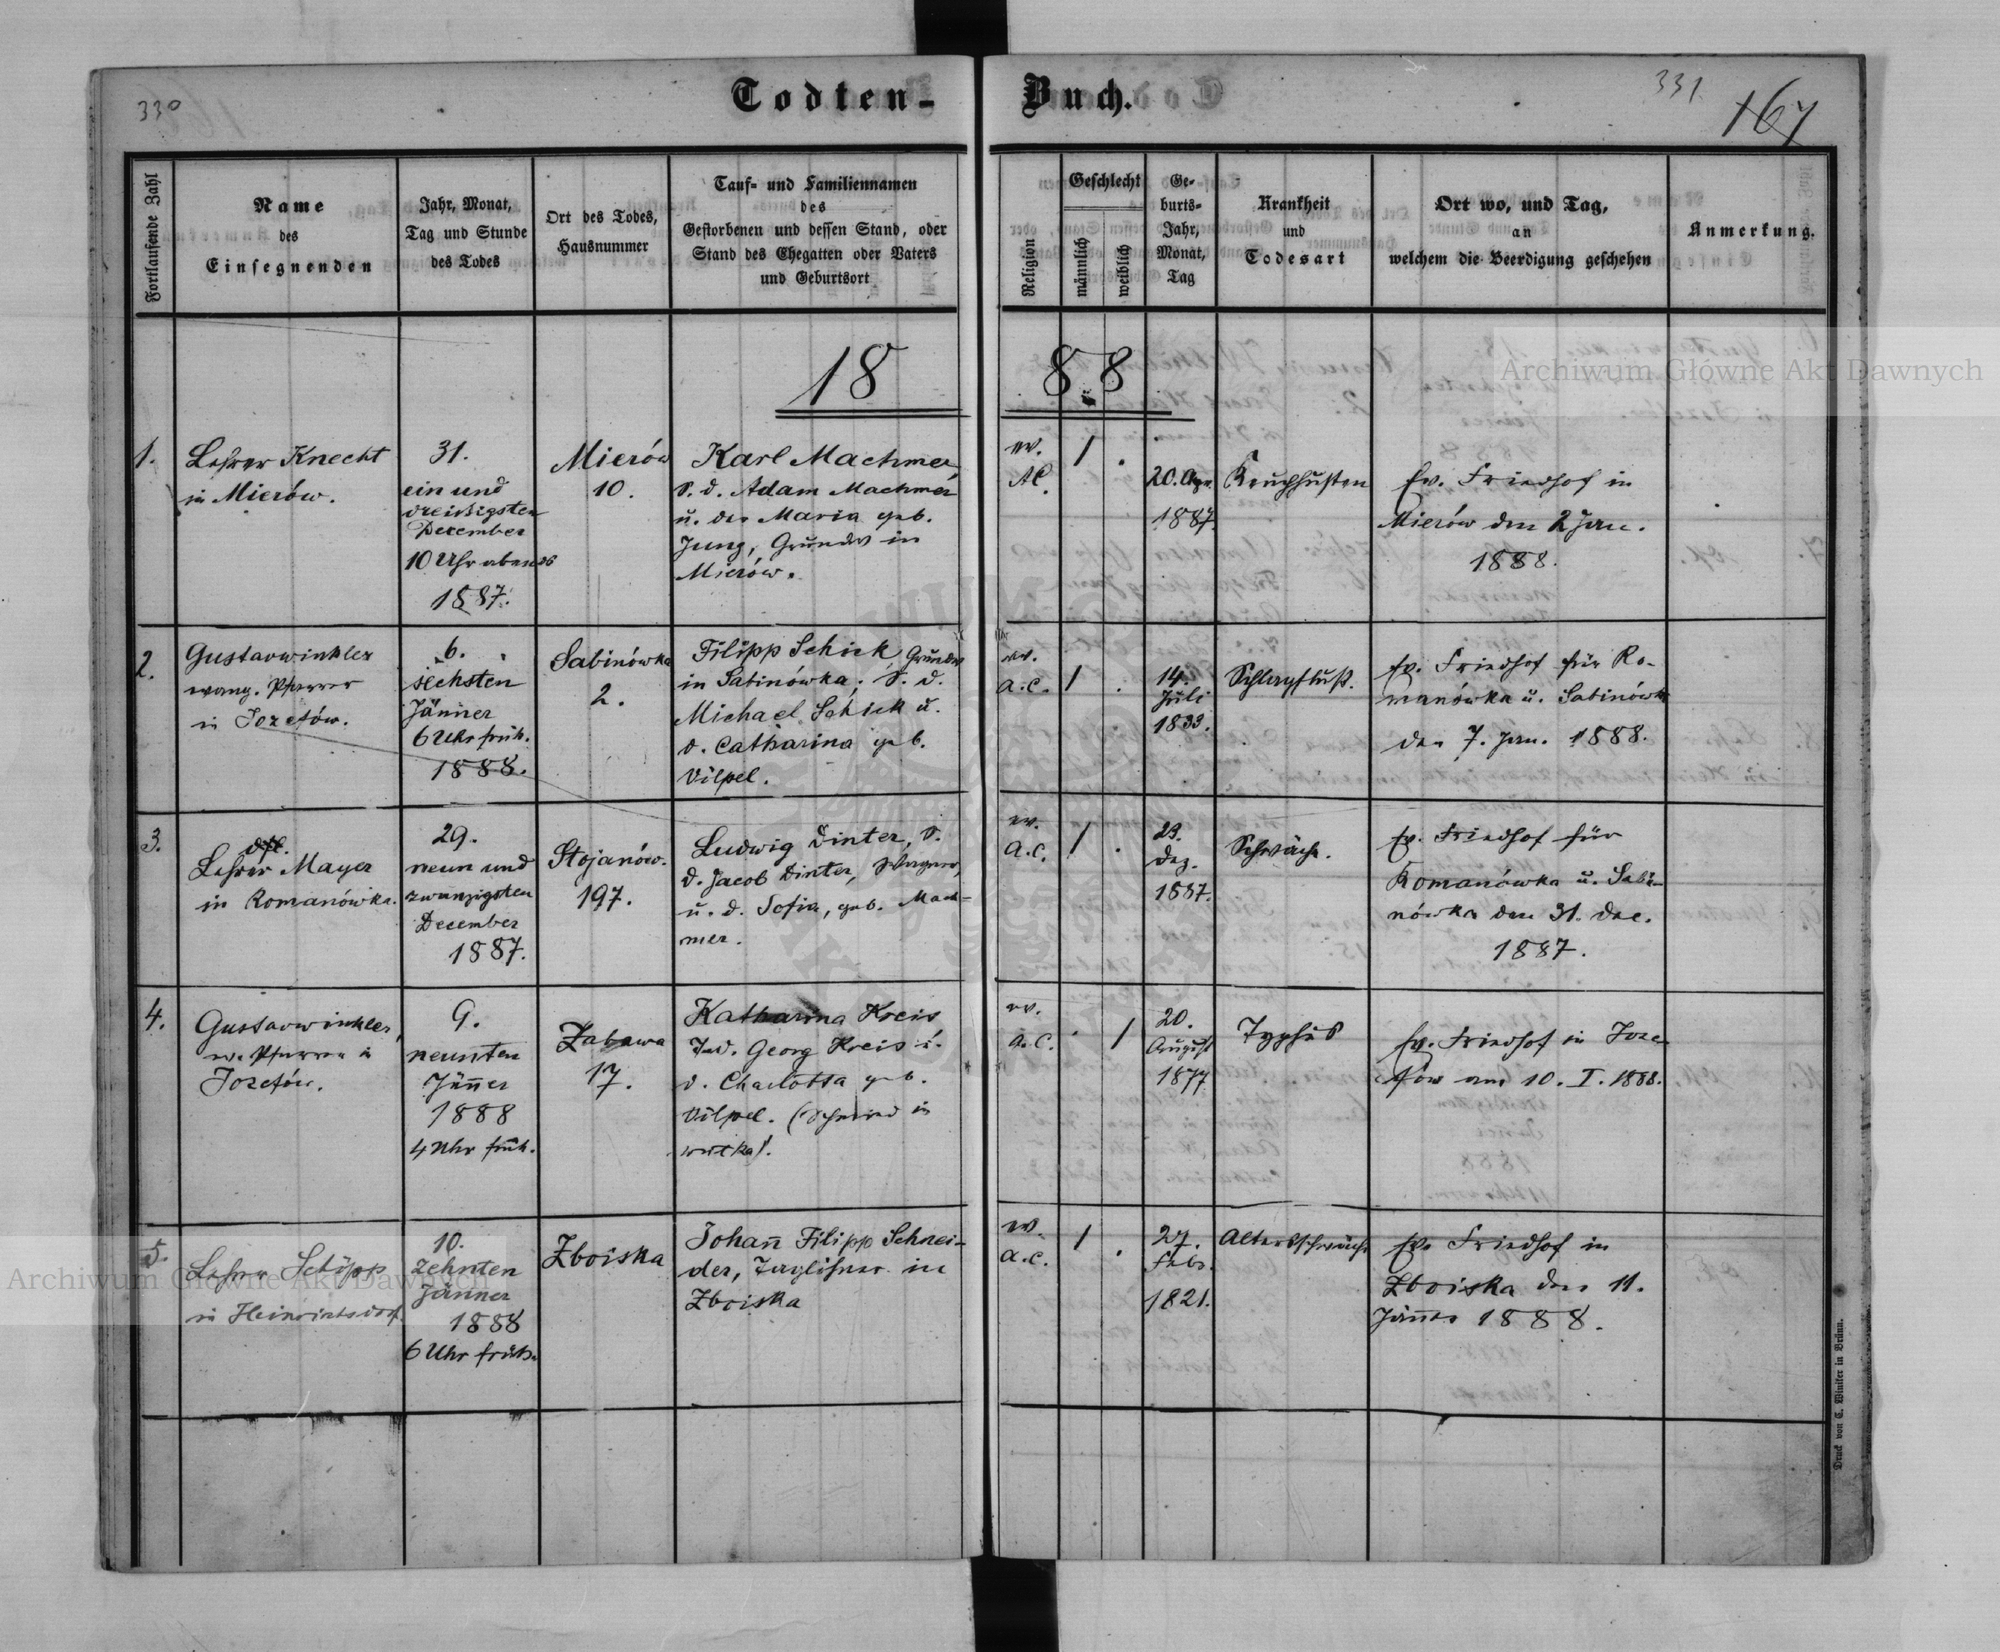 330
Todten-Buch.
331
167
Fortlaufende Zahl
Name
des
Einsegnenden
Jahr, Monat,
Tag und Stunde
des Todes
Ort des Todes,
Hausnummer
Tauf- und Familiennamen
des
Gestorbenen und dessen Stand, oder
Stand des Ehegatten oder Vaters
und Geburtsort
Religion
Geschlecht
männlich
weiblich
Ge-
burts-
Jahr,
Monat,
Tag
Krankheit
und
Todesart
Ort wo, und Tag,
an
welchem die Beerdigung geschehen
Anmerkung.
1888
1.
Lehrer Knecht
in Mierów.
31.
ein und
dreißigsten
December
10 Uhr abends
1887.
Mierów
10.
Karl Machmer,
S. d. Adam Machmer
u. der Maria geb.
Jung, Grundw in
Mierów.
ev.
AC.
1
.
20. Apr.
1887.
Keuchhusten
Ev. Friedhof in
Mierów den 2 Jan.
1888.
2.
Gustav Winkler
evang. Pfarrer
in Jozefów.
6.
sechsten
Jänner
6 Uhr früh.
1888.
Sabinówka
2.
Filipp Schick Grundw
in Sabinówka; S. d.
Michael Schick u.
d. Catharina geb.
Völpel.
ev.
a.c.
1
.
14.
Juli
1833.
Schlagfluß.
Ev. Friedhof für Ro-
manówka u. Sabinówka
den 7. Jan. 1888.
3.
dtl.
Lehrer Mayer
in Romanówka.
29.
neun und
zwanzigsten
December
1887.
Stojanów.
197.
Ludwig Dinter, S.
d. Jacob Dinter, Wagner,
u. d. Sofia, geb. Mach-
mer.
ev.
a.c.
1
.
29.
Dez.
1887.
Schwäche.
Ev. Friedhof für
Romanówka u. Sabi-
nówka den 31. Dec.
1887.
4.
Gustav Winkler,
ev. Pfarrer in
Jozefów.
9.
neunten
Jänner
1888
4 Uhr früh.
Zabawa
17.
Katharina Kreis
Georg Kreis u.
d. Charlotta geb.
Völpel. (Schmied in
ev.
a.c.
.
1
20.
August
1877
Typhus
Ev. Friedhof in Joze-
fów am 10. I. 1888.
5.
Lehrer Schöpp
in Heinrichsdorf.
10.
zehnten
Jänner
1888
6 Uhr früh.
Zboiska
Johann Filipp Schnei-
der, Taglöhner in
Zboiska
ev.
a.c.
1
.
27.
Febr.
1821.
Altersschwäche
Ev. Friedhof in
Zboiska den 11.
Jänner 1888.
Druck von C. Winiker in Brünn.
Archiwum Główne Akt Dawnych
Archiwum Główne Akt Dawnych